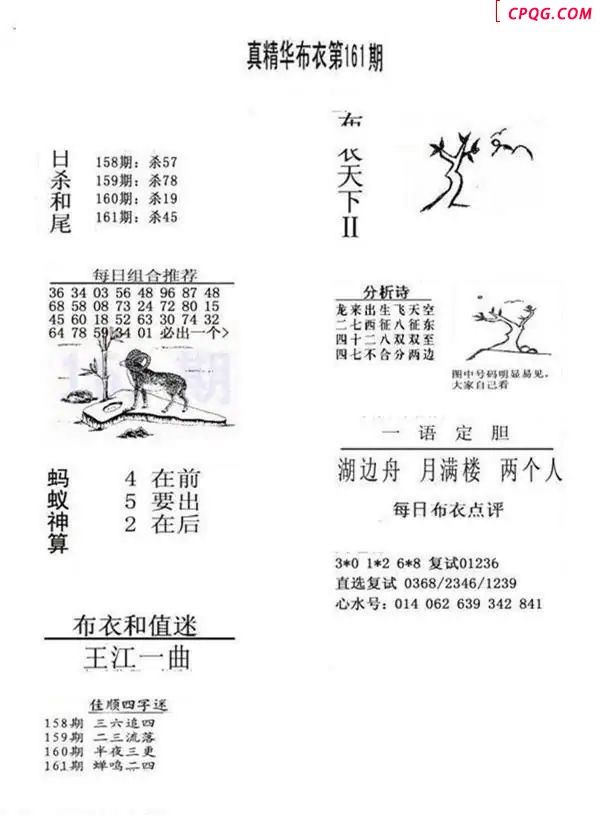 CPQG.COM
真精华布衣第161期
日杀和尾
158期：杀57
159期：杀78
160期：杀19
161期：杀45
布衣天下II
每日组合推荐
36 34 03 56 48 96 87 48
68 58 08 73 24 72 80 15
45 60 18 52 63 30 74 32
64 78 59 34 01 必出一个>
分析诗
龙来出生飞天空
二七西征八征东
四十二八双双至
四七不合分两边
图中号码明显易见。
大家自己看
一语定胆
湖边舟 月满楼 两个人
每日布衣点评
蚂蚁神算
4 在前
5 要出
2 在后
3*0 1*2 6*8 复试01236
直选复试 0368/2346/1239
心水号：014 062 639 342 841
布衣和值迷
王江一曲
佳顺四字迷
158期 三六追四
159期 二三流落
160期 半夜三更
161期 蝉鸣二四